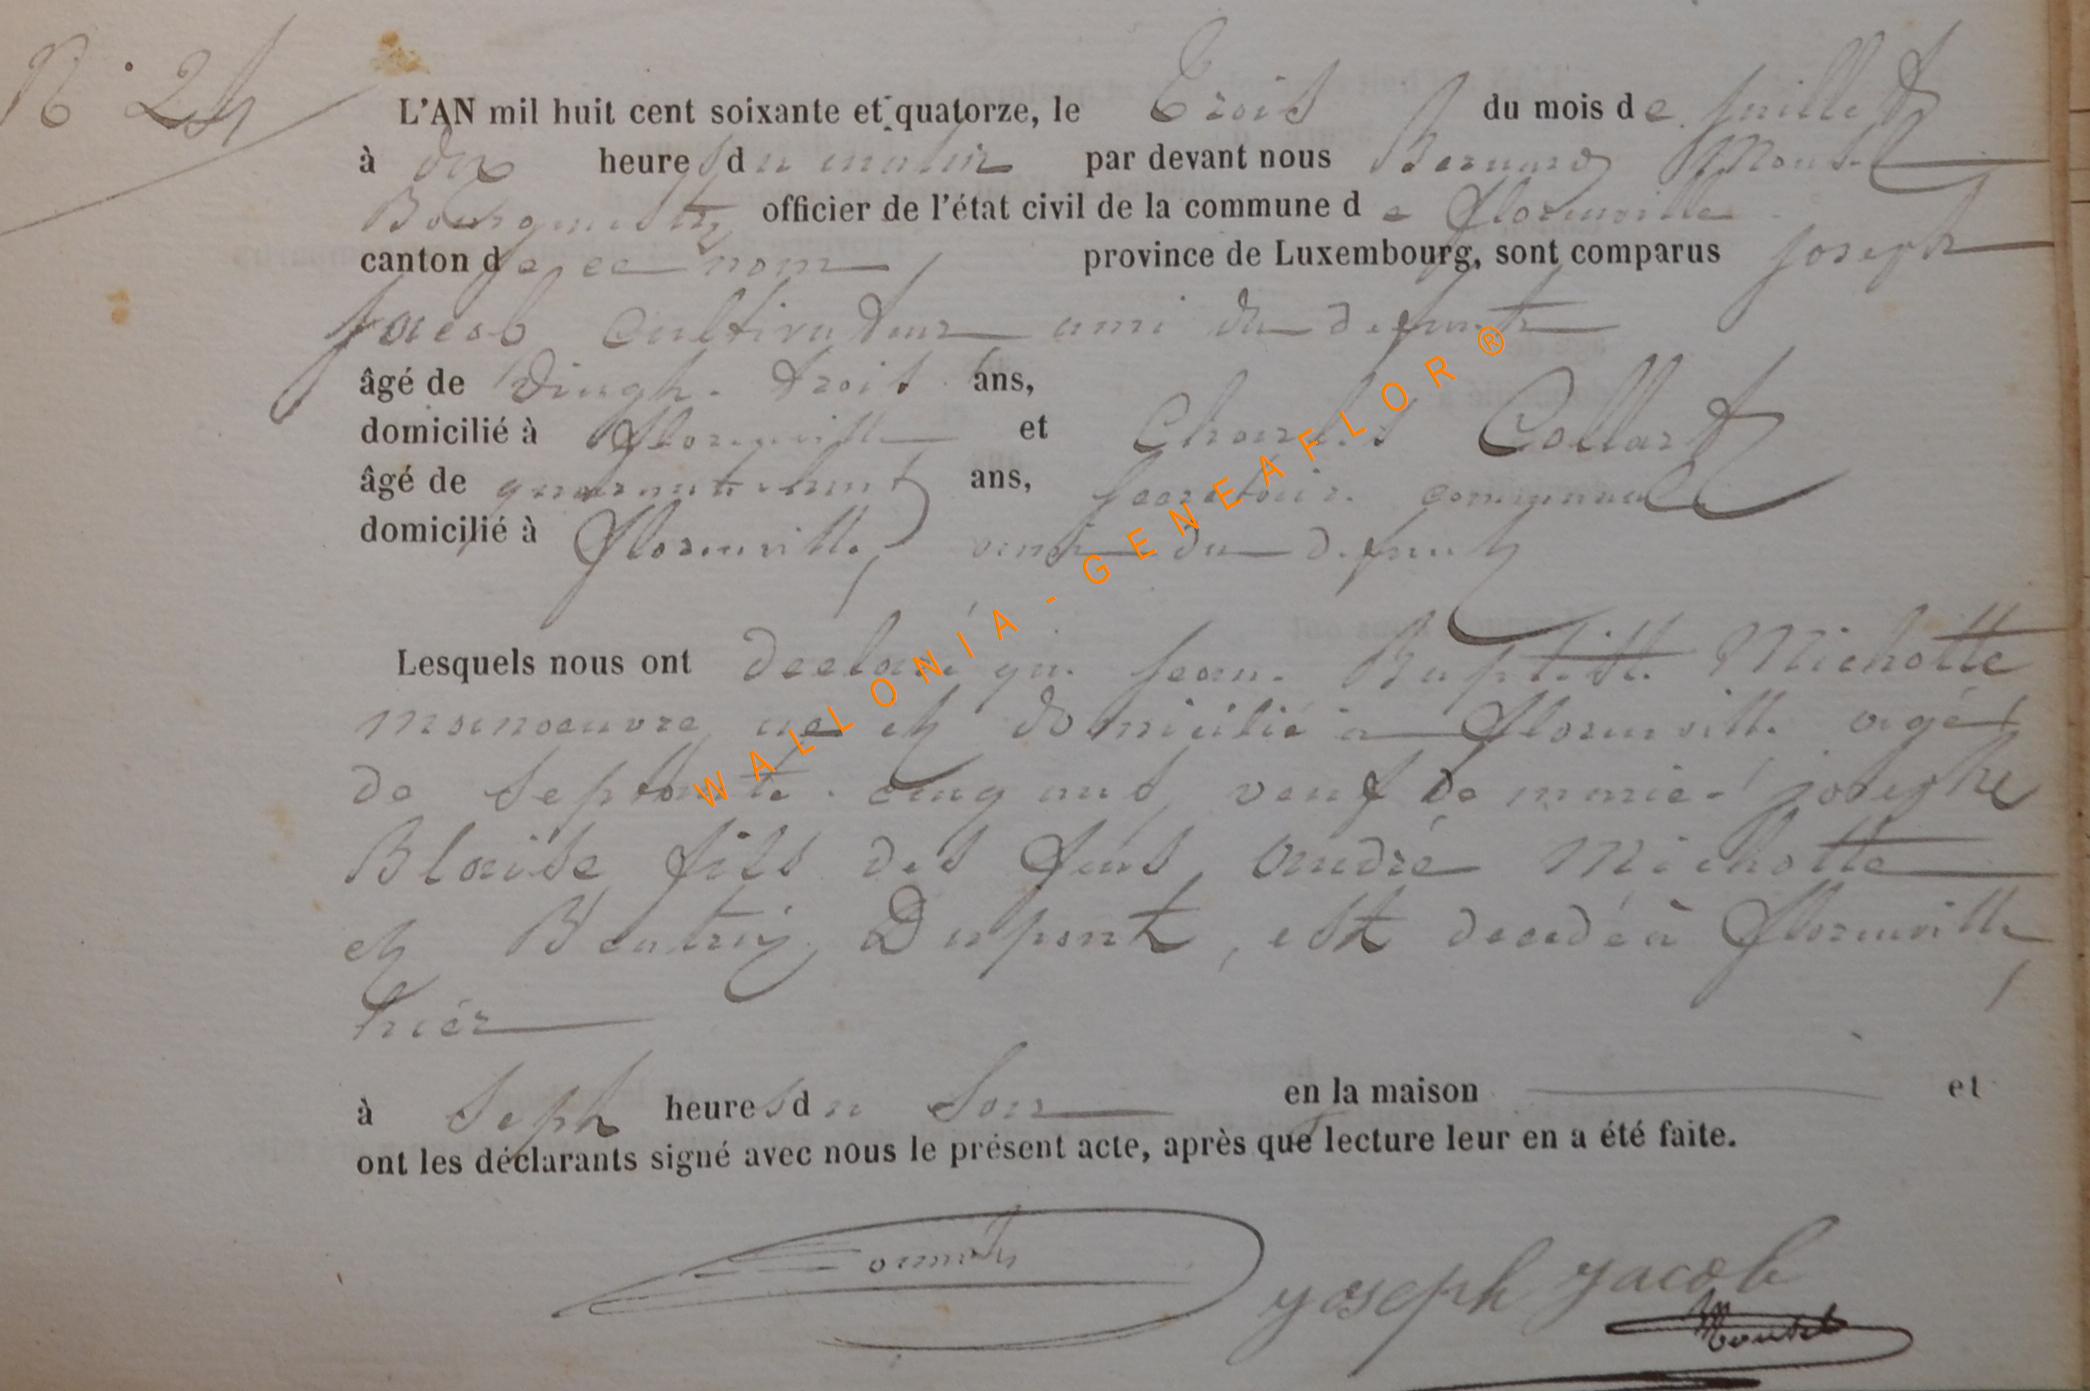 N° 24
L'AN mil huit cent soixante et quatorze, le Trois du mois de juillet
à dix heures du matin par devant nous Bernard Mousel
Bourgmestre officier de l'état civil de la commune de Florenville
canton de ce nom, province de Luxembourg, sont comparus Joseph
Jacob Cultivateur ami du defunt
âgé de Vingt-trois ans,
domicilié à Florenville et Charles Collard
âgé de quarante-huit ans, Secretaire communal
domicilié à Florenville, du defunt
Lesquels nous ont declaré que Jean-Baptiste Michotte
manoeuvre né et domicilié à Florenville agé
de septante-cinq ans, veuf de marie-josephe
Blaise fils des feus André Michotte
et Beatrix Dupont, est decedé à Florenville,
hier
à Sept heures du Soir en la maison et
ont les déclarants signé avec nous le présent acte, après que lecture leur en a été faite.
Joseph Jacob
Mousel
WALLONIA - GENEAFLOR ®